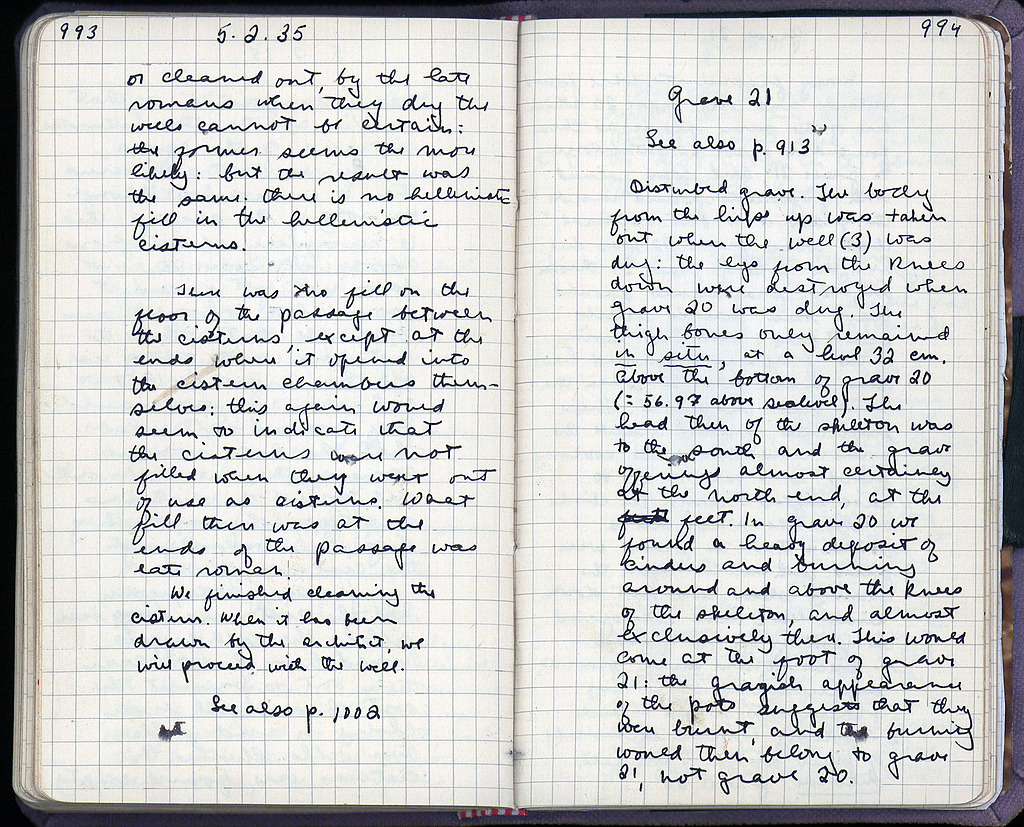 993
5.2.35
or cleaned out, by the late
romans when they dug the
wells cannot be certain:
the former seems the more
likely: but the result was
the same: there is no hellenistic
fill in the hellenistic
cisterns.
There was no fill on the
floor of the passage between
the cisterns, except at the
ends where it opened into
the cistern chambers them-
selves: this again would
seem to indicate that
the cisterns were not
filled when they went out
of use as cisterns. What
fill there was at the
ends of the passage was
late roman.
We finished cleaning the
cistern. When it has been
drawn by the architect, we
will proceed with the well.
See also p. 1002
994
Grave 21
See also p. 913
Disturbed grave. The body
from the hips up was taken
out when the well (3) was
dug: the legs from the knees
down were destroyed when
grave 20 was dug. The
thigh bones only remained
in situ, at a level 32 cm.
above the bottom of grave 20
(= 56.97 above sealevel). The
head then of the skeleton was
to the south and the grave
offerings almost certainly
at the north end, at the
feet. In grave 20 we
found a heavy deposit of
cinders and burning
around and above the knees
of the skeleton, and almost
exclusively there. This would
come at the foot of grave
21: the grayish appearance
of the pots suggests that they
were burnt, and the burning
would then belong to grave
21, not grave 20.